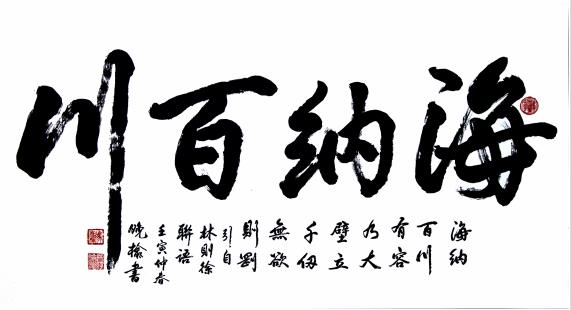 海納百川
海納
百川
有容
乃大
壁立
千仞
無欲
則剛
引自
林則徐
聯語
壬寅仲春
書